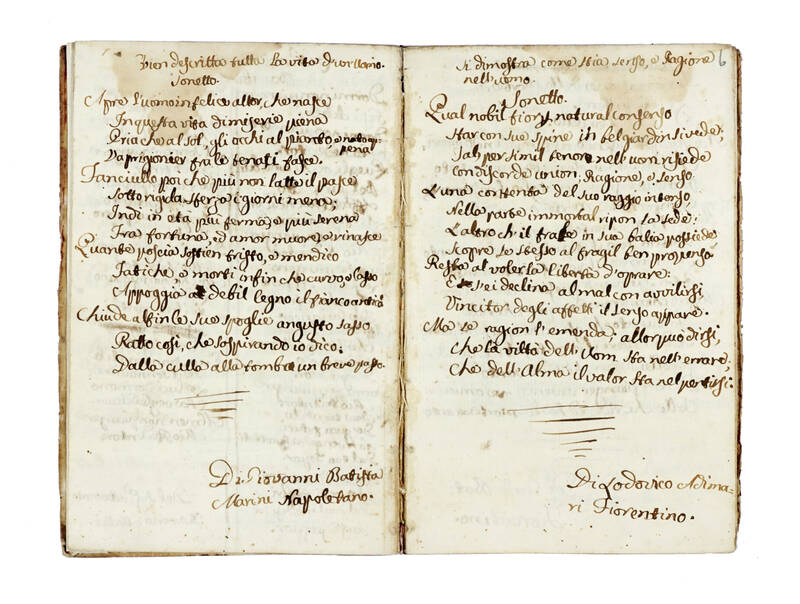 Vien descritta tutta la vita d'un Uomo.
Sonetto.
Apre l'uomo infelice allor, che nasce
In questa vita di miserie piena
Pria ch'al sol, gli occhi al pianto, e nato app
pena
Va prigionier fra le tenaci fasce.
Fanciullo poi che più non latte il pasce
Sotto rigida sferza i giorni mena;
Indi in età più ferma, e più serena
Fra fortuna, ed amor muore, e rinasce
Quante poscia sostien tristo, e mendico
Fatiche, e morti infin che curvo, e lasso
Appoggia a debil legno il fianco antico
Chiude alfin le sue spoglie angusto sasso
Ratto così, che sospirando io dico:
Dalla culla alla tomba è un breve passo.
Di Giovanni Batista
Marini Napoletano.
6
Si dimostra come stia senso, e Ragione
nell'uomo.
Sonetto.
Qual nobil fior, natural consenso
Star con sue spine in bel giardin si vede;
Tal per simil tenore nell'uom risiede
Con discorde union: Ragione, e senso
L'una contenta del suo raggio intenso
Nella parte immortal ripon la sede;
L'altro ch'il frale in sua balia possiede
Scopre se stesso al fragil ben propenso
Resta al voler la libertà d'oprare:
E se declina al mal con avvilirsi,
Vincitor degli affetti il senso appare.
Ma se ragion l'emenda; allor può dirsi,
Che la viltà dell'Uom sta nell'errare;
Che dell'Alma il valor sta nel pentirsi.
Di Lodovico Adima-
ri Fiorentino.